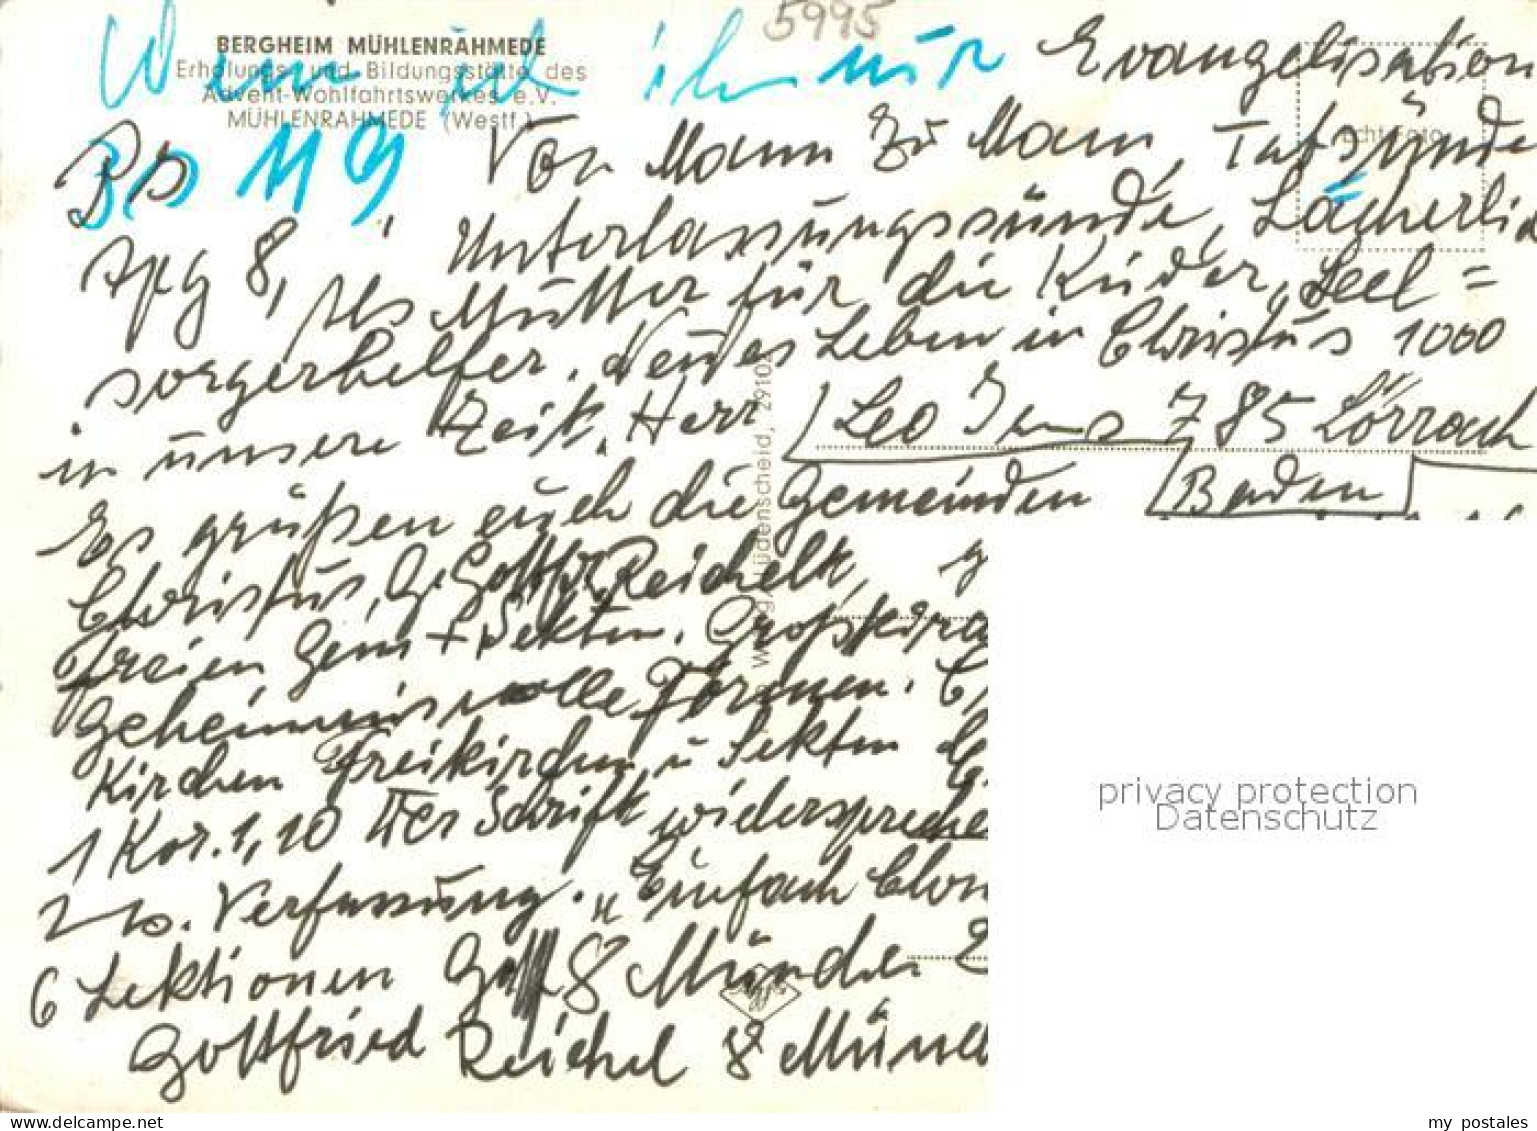 5995
BERGHEIM MÜHLENRAHMEDE
Erholungs- und Bildungsstätte des
Advent-Wohlfahrtswerkes e.V.
MÜHLENRAHMEDE (Westf.)
Wenn ich nur Evangelisation
Ps 119 Von Mann zu Mann, Tatsünde
Echt Foto
Apg 8, Unterlassungssünde, Lächerlic
als Mutter für die Kinder, Seel=
sorgerhelfer. Neues Leben in Christus 1000
in unsere Zeit. Herr Leo Jens 785 Lörrach
Es grüßen euch die Gemeinden Baden
Christus, G. Gottfr. Reichelt,
freien Gem + Sekten.
Geheimnisvolle Formen.
Kirchen Freikirchen u Sekten
1 Kor. 1,10 Der Schrift widerspreche
Verfassung. "Einfach
6 Lektionen 8 München
Gottfried Reichel 8 Münc
Lüdenscheid, 29102
privacy protection
Datenschutz
my_postales
delcampe.net